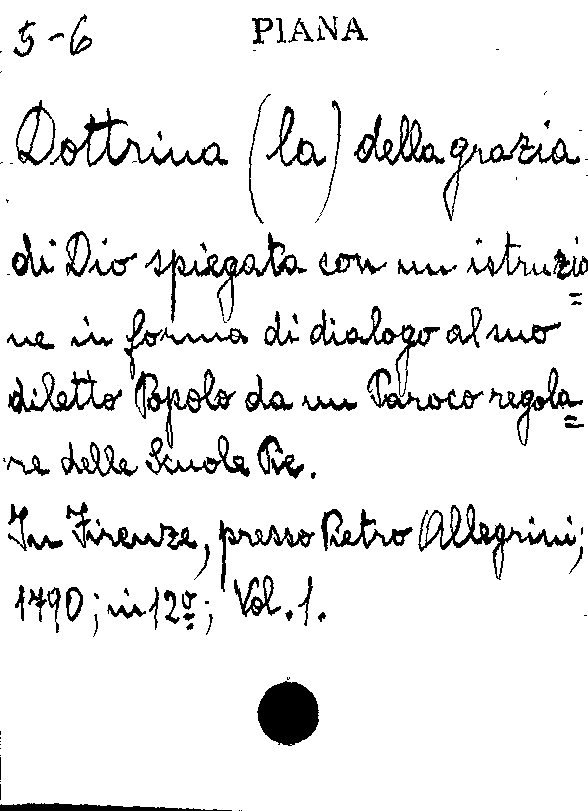 5-6 PIANA
Dottrina (la) della grazia
di Dio spiegata con un istruzio=
ne in forma di dialogo al suo
diletto Popolo da un Paroco regola=
re delle Scuole Pie.
In Firenze, presso Pietro Allegrini;
1790; in 12º; Vol. 1.